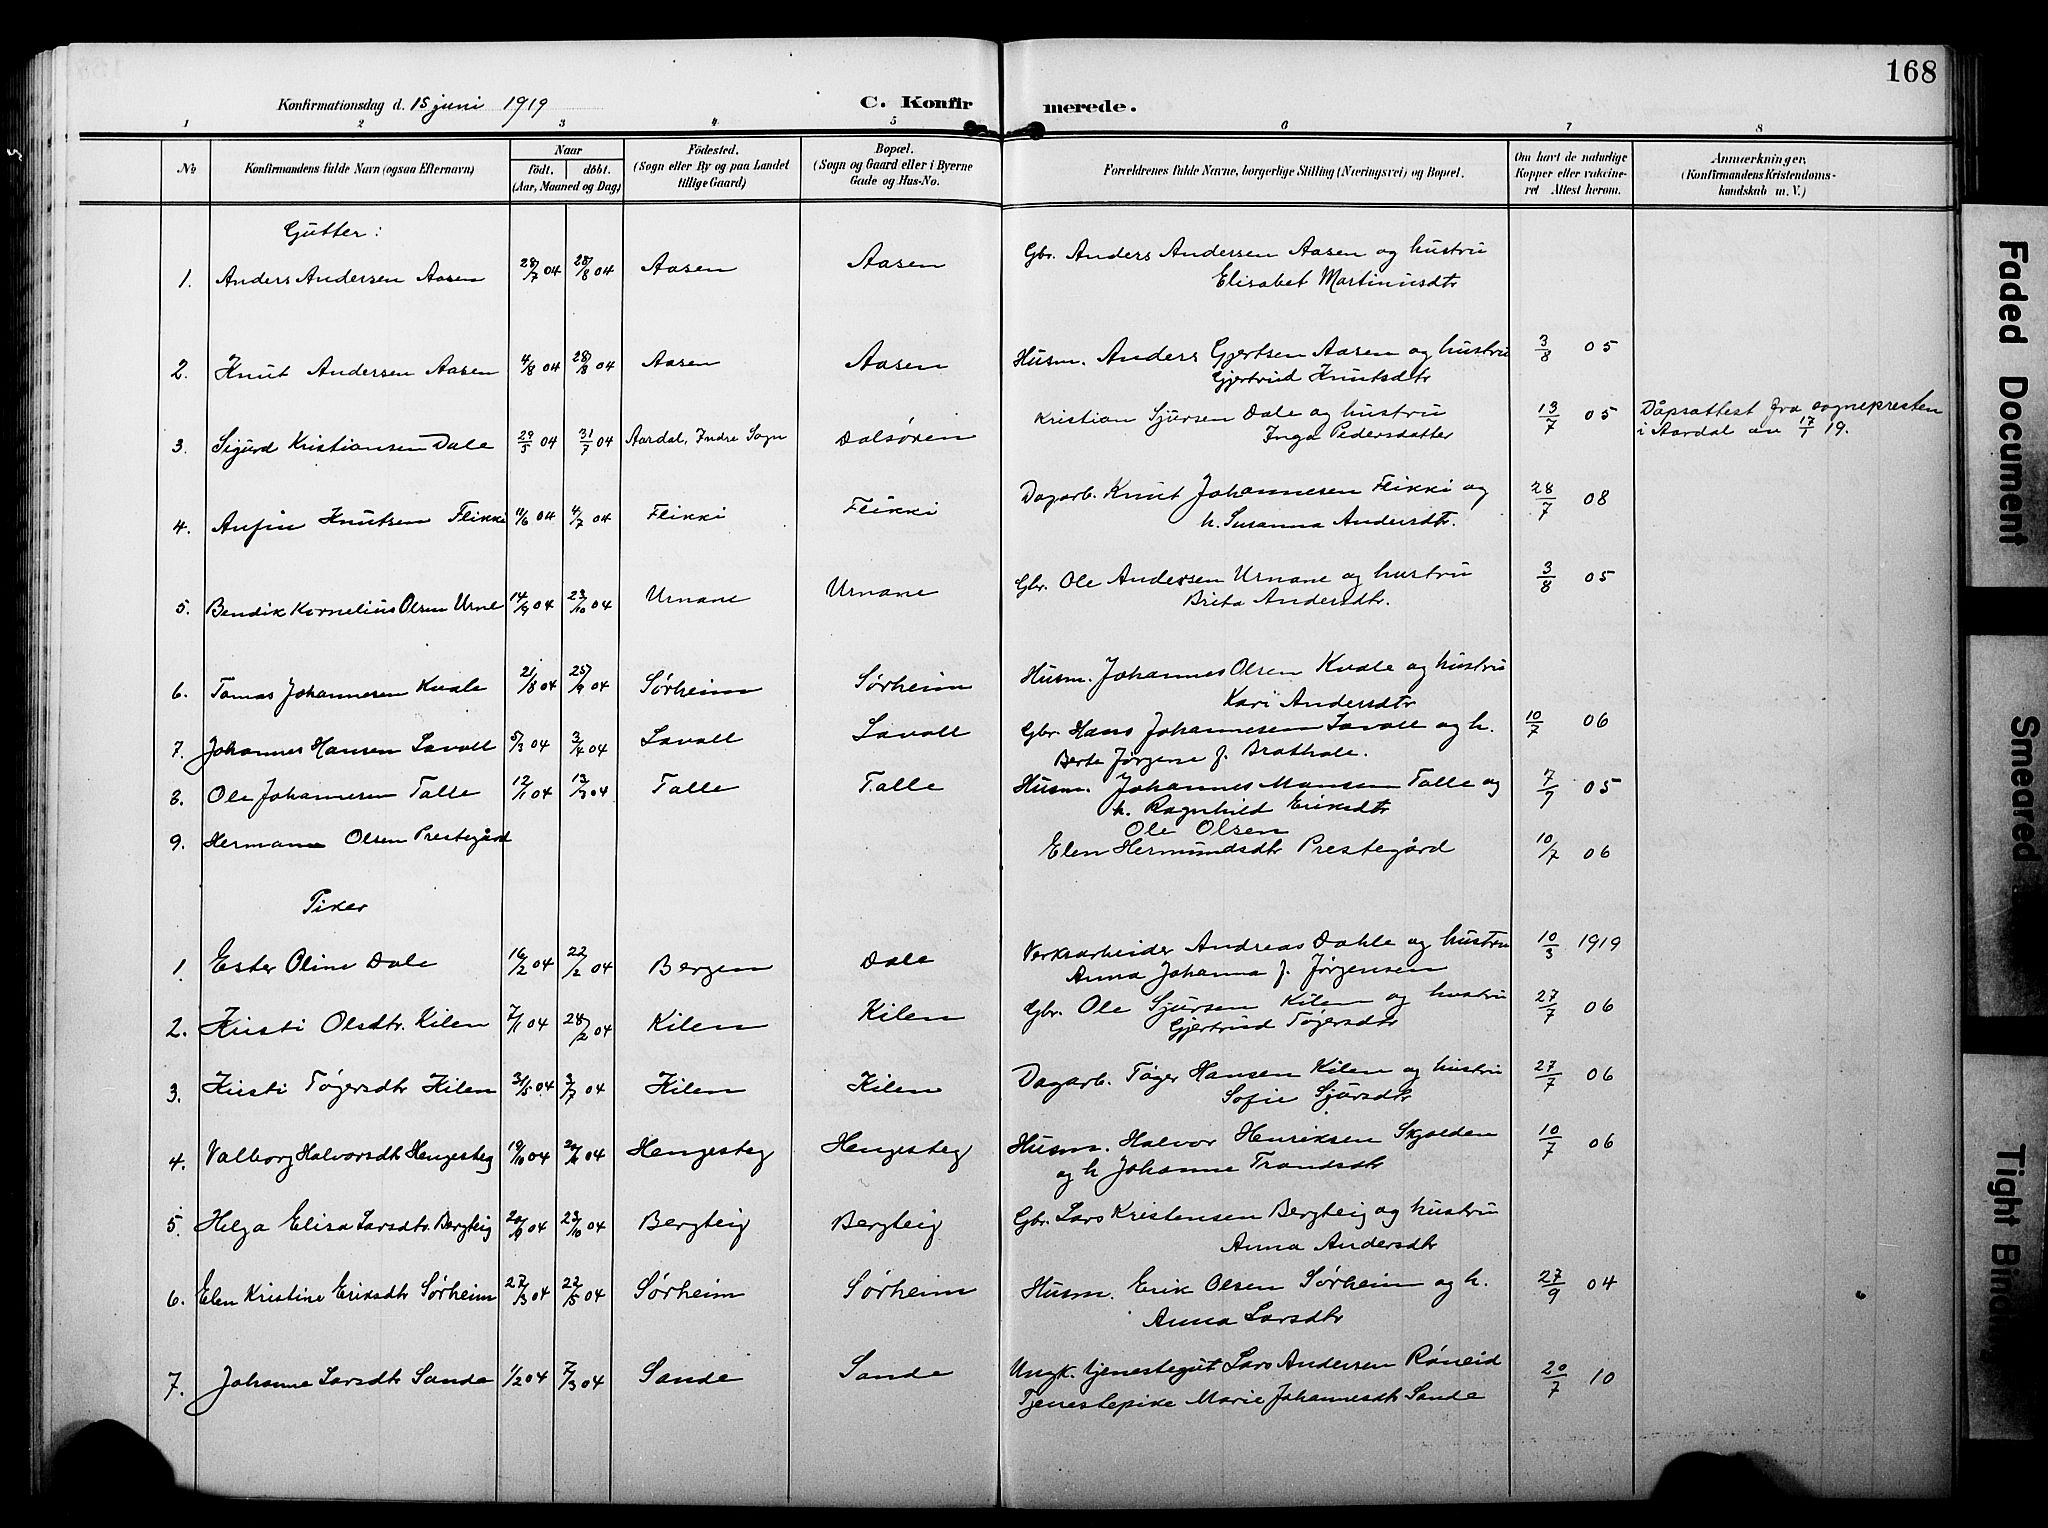 168
Konfirmationsdag d. 15 juni 1919
C. Konfirmerede.
1 2 3 4 5 6 7 8
No
Konfirmandens fulde Navn (ogsaa Efternavn)
Naar
født. døbt.
(Aar, Maaned og Dag)
Fødested.
(Sogn eller By og paa Landet
tillige Gaard)
Bopæl.
(Sogn og Gaard eller i Byerne
Gade og Hus-No.
Forældrenes fulde Navne, borgerlige Stilling (Næringsvei) og Bopæl.
Om havt de naturlige
Kopper eller vakcine-
ret Attest herom.
Anmærkninger,
(Konfirmandens Kristendoms-
kundskab m. V.)
Gutter:
1. Anders Andersen Aasen 28/7 04 28/8 04 Aasen Aasen Gbr. Anders Andersen Aasen og hustru
Elisabet Martinusdtr
2. Knut Andersen Aasen 4/8 04 28/8 04 Aasen Aasen Husm. Anders Gjertsen Aasen og hustru 3/8 05
Gjertrud Knutsdtr
3. Sigurd Kristiansen Dale 29/5 04 31/7 04 Aardal, Indre Sogn Dalsøren Kristian Sjursen Dale og hustru 13/7 05 Dåpsattest fra sognepresten
Inga Pedersdatter i Aardal av 17/1 19.
4. Anfin Knutsen Flikki 11/6 04 4/7 04 Flikki Flikki Dagarb. Knut Johannesen Flikki og 28/7 08
h. Susanna Andersdtr.
5. Bendik Kornelius Olsen Urne 14/9 04 23/10 04 Urnane Urnane Gbr. Ole Andersen Urnane og hustru 3/8 05
Brita Andersdtr.
6. Tomas Johannesen Kvale 21/8 04 25/9 04 Sørheim Sørheim Husm. Johannes Olsen Kvale og hustru
Kari Andersdtr
7. Johannes Hansen Lavoll 5/3 04 3/4 04 Lavoll Lavoll Gbr. Hans Johannesen Lavoll og h. 10/7 06
Berte Jørgine f. Brathole.
8. Ole Johannesen Talle 12/1 04 13/3 04 Talle Talle Husm. Johannes Monsen Talle og 7/9 05
h. Ragnhild Eriksdtr
9. Hermann Olsen Prestegård Ole Olsen
Elen Hermundsdtr Prestegård 10/7 06
Piker
1. Ester Oline Dale 16/2 04 22/2 04 Bergen Dale Verksarbeider Andreas Dahle og hustru 10/3 1919
Anna Johanna f. Jørgensen
2. Kirsti Olsdtr. Kilen 7/1 04 28/2 04 Kilen Kilen Gbr. Ole Sjursen Kilen og hustru 27/7 06
Gjertrud Tøgersdtr
3. Kirsti Tøgersdtr Kilen 31/5 04 3/7 04 Kilen Kilen Dagarb. Tøger Hansen Kilen og hustru 27/7 06
Sofie Sjursdtr
4. Valborg Halvorsdt Hengesteg 19/10 04 04 Hengesteg Hengesteg Husm. Halvor Henriksen Skjolden 10/7 06
og h Johanne Trondsdtr
5. Helga Elisa Larsdtr. Bergteig 20/9 04 23/10 04 Bergteig Bergteig Gbr. Lars Kristensen Bergteig og hustru
Anna Andersdtr
6. Elen Kristine Eriksdtr Sørheim 27/3 04 22/5 04 Sørheim Sørheim Husm. Erik Olsen Sørheim og h. 27/9 04
Anna Larsdtr
7. Johanne Larsdtr Sande 1/2 04 7/3 04 Sande Sande Ungk. tjenestegut Lars Andersen Røneid 20/7 10
Tjenestepike Marie Johannesdtr Sande
Faded Document
Smeared
Tight Binding